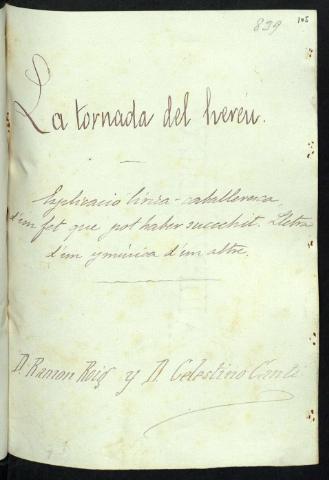 839
105
La tornada del heréu.
Esplicacio lirica-caballeresca
d'un fet que pot haber succehit. Lletra
d'un y música d'un altre.
D. Ramon Roig y D. Celestino